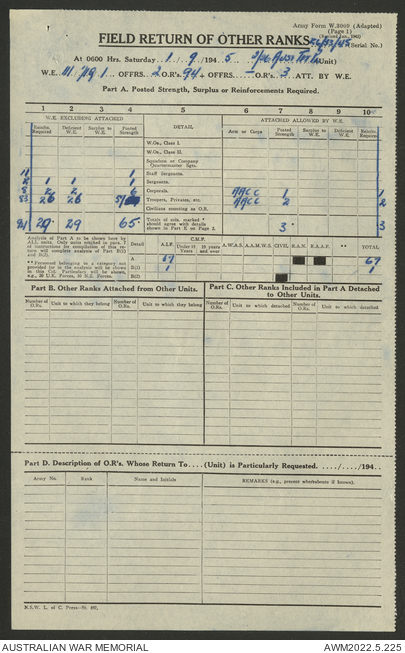 Army Form W.3009 (Adapted)
(Page 1)
FIELD RETURN OF OTHER RANKS
(Serial No.)
At 0600 Hrs. Saturday 1 / 9 /194 5 (Unit)
W.E. III/ 1 OFFRS. O.R's. 94 + OFFRS. — O.R's. 3 ATT. BY W.E.
Part A. Posted Strength, Surplus or Reinforcements Required.
1 2 3 4 5 6 7 8 9 10
W.E. EXCLUDING ATTACHED DETAIL ATTACHED ALLOWED BY W.E.
Reinfs. Required Deficient W.E. Surplus to W.E. Posted Strength Arm or Corps Posted Strength Deficient W.E. Surplus to W.E. Reinfs. Required
W.Os., Class I.
W.Os., Class II.
Squadron or Company Quartermaster Sgts.
11 Staff Sergeants. 1
1 1 Sergeants. 1
8 2 2 Corporals. AACC 1 1
83 26 26 Troopers, Privates, etc. AACC 2 2
Civilians counting as O.R.
94 29 29 65 Totals of cols. marked * should agree with details shown in Part E on Page 2. 3 3
Analysis of Part A to be shown here by ALL units. Only units required in para. 7 of instructions for compilation of this return will complete analysis of Part B(1) and B(2).
Detail A.I.F. C.M.F. Under 19 years 19 years and over A.W.A.S. A.A.M.W.S. CIVIL R.A.N. R.A.A.F. ** TOTAL
A 67 67
** Personnel belonging to a category not provided for in the analysis will be shown in this Col. Particulars will be shown, e.g., 20 U.K. Forces, 10 N.Z. Forces.
B(1) 1 1
B(2)
Part B. Other Ranks Attached from Other Units.
Part C. Other Ranks Included in Part A Detached to Other Units.
Number of O.Rs. Unit to which they belong Number of O.Rs. Unit to which they belong Number of O.Rs. Unit to which detached Number of O.Rs. Unit to which detached
Part D. Description of O.R's. Whose Return To.....(Unit) is Particularly Requested. ..../..../194..
Army No. Rank Name and Initials REMARKS (e.g., present whereabouts if known).
AUSTRALIAN WAR MEMORIAL AWM2022.5.225